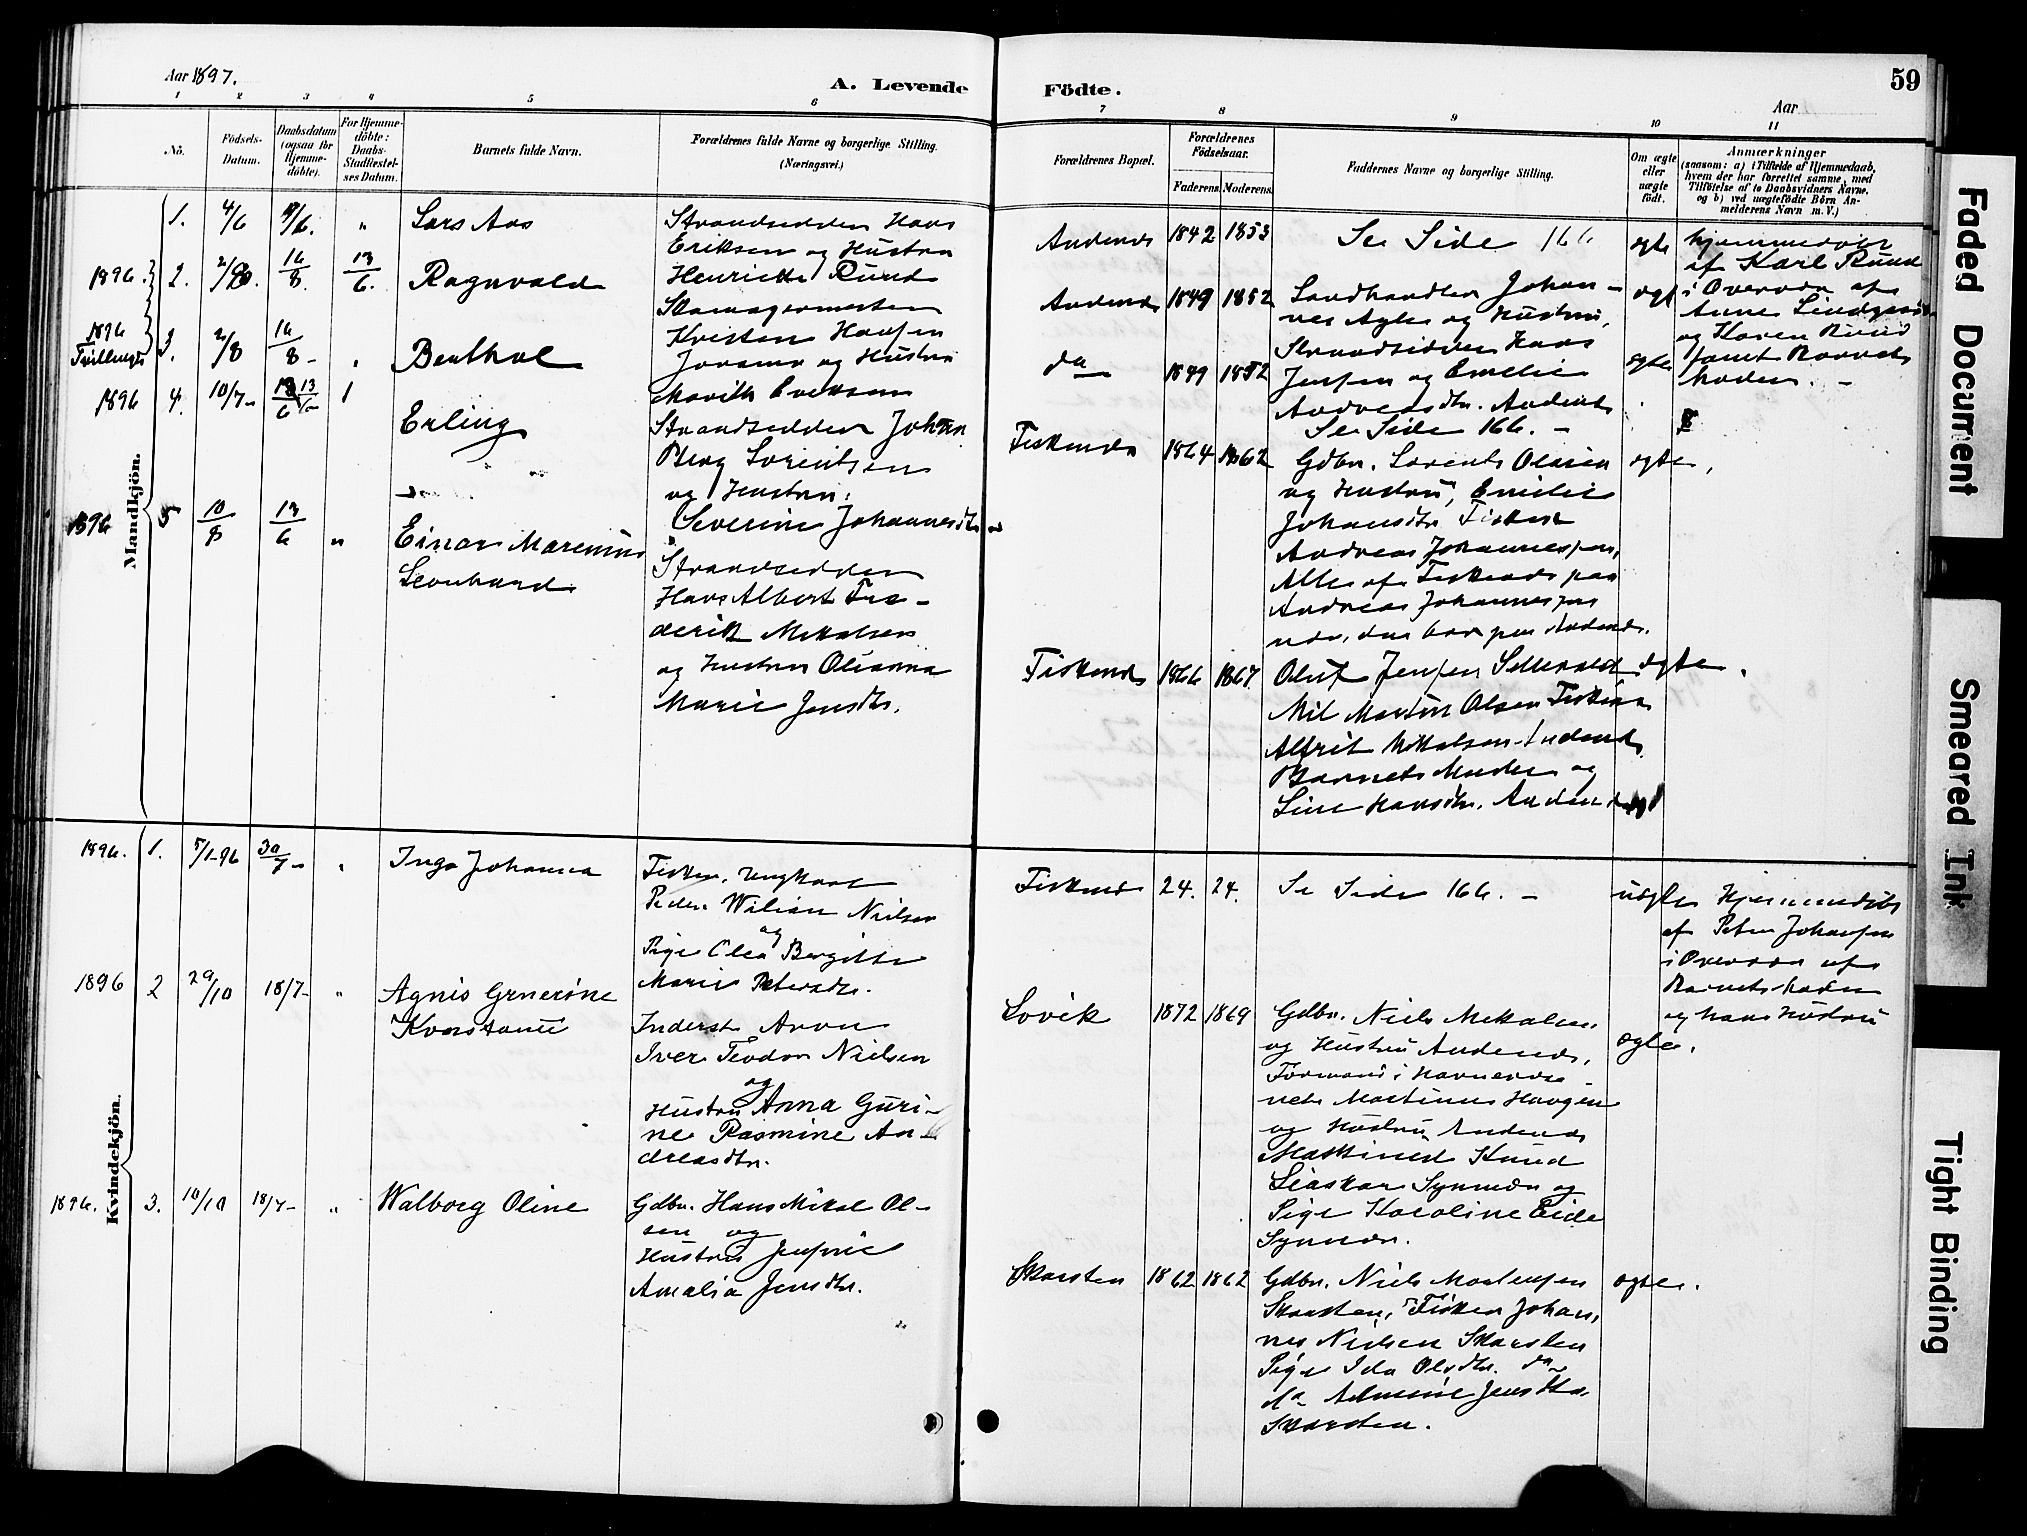 Aar 1897.
A. Levende Födte.
59
Aar
1 2 3 4 5 6 7 8 9 10 11
Nö.
Födsels-
Datum.
Daabsdatum
(ogsaa for
Hjemme-
döbte).
For Hjemme-
döbte:
Daabs-
Stadfæstel-
ses Datum.
Barnets fulde Navn.
Forældrenes fulde Navne og borgerlige Stilling.
(Næringsvei.)
Forældrenes Bopæl.
Forældrenes
Födselsaar.
Faderens. Moderens.
Faddernes Navne og borgerlige Stilling.
Om ægte
eller
uægte
født.
Anmærkninger
(saasom: a) i Tilfælde af Hjemmedaab,
hvem der har forrettet samme, med
Tilföielse af to Daabsvidners Navne,
og b) ved uægtefödte Börn An-
melderens Navn m. V.)
Mandkjön.
1. 4/6 "
Lars Aas
Strandsidder Hans
Eriksen og Hustru
Henriette Ruud
Andenes 1842 1853
Se Side 166
ægte
af Karl Ruud
i Overvær af
Anne
og Karen Ruud
samt Barnets
Moder. -
1896. 2. 16/8. 13/6.
Ragnvald
Kristen Hansen
og Hustru
Andenes 1849 1852
Sandhandler Johan-
nes og Hustru,
Strandsidder Hans
Jensen og Emelie
Andreasdtr. Andenes
1896
Tvillinger 3. 2/8 16/8 -
Benthal
do 1849 1852
Se Side 166. -
ægte
1896 4. 10/7- 13/6
Erling
Strandsidder Johan
Berg Lorentsen
og Hustru
Severine Johannesdtr
Fiskenes 1864 1862
Gdbr. Lorents Olsen
og Hustru, Emilie
Johansdtr Fiskenes
Andreas Johannesen,
Alle af Fiskenes paa
Andreas Johannesen
nær, der bor paa Andenes.
ægte,
1896 5 10/8 13/6 "
Einar Marenius
Leonhard
Strandsidder
Hans Albert Fre-
derik Mikalsen
og Hustru Olianna
Marie Jensdtr.
Fiskenes 1866 1867
Oluf Jensen
Martin Olsen Fiskenes
Alfrit Mikalsen Andenes
Barnets Moder og
Line Hansdtr. Andenes
ægte.
Kvindekjön.
1896. 1. 5/1-96 30/7- "
Inga Johanna
Fisker, ungkarl
Peder Wilian Nielsen
og
Pige Olea Bergitte
Marie Petersdtr.
Fiskenes 24. 24.
Se Side 166. -
uægte
Hjemmedöbt
af Peter Johansen
i Overvær af
Barnets Moder
og hans Hustru
1896 2 29/10 18/7- "
Agnis Grnerine
Konstanse
Inderst Aron
Iver Teodor Nielsen
og
Hustru Anna Guri-
ne Rasmine An-
dreasdtr.
Lovik 1872 1869
Gdbr. Niels Mikalsen
og Hustru Andenes,
Formand i Havnevæse-
net Martinus Haugen
og Hustru Andenes
Maskinist Knud
og
Pige Karoline Eide
ægte.
1896. 3. 10/10 18/7- "
Walborg Oline
Gdbr. Hans Mikal Ol-
sen og
Hustru Jensine
Amalia Jensdtr.
Skarsten 1862 1862
Gdbr. Niels Mortensen
Skarsten, Fisker Johan-
nes Nielsen Skarsten
Pige Ida Olsdtr. do
do Jensdtr.
Skarsten.
ægte.
Faded Document
Smeared Ink
Tight Binding